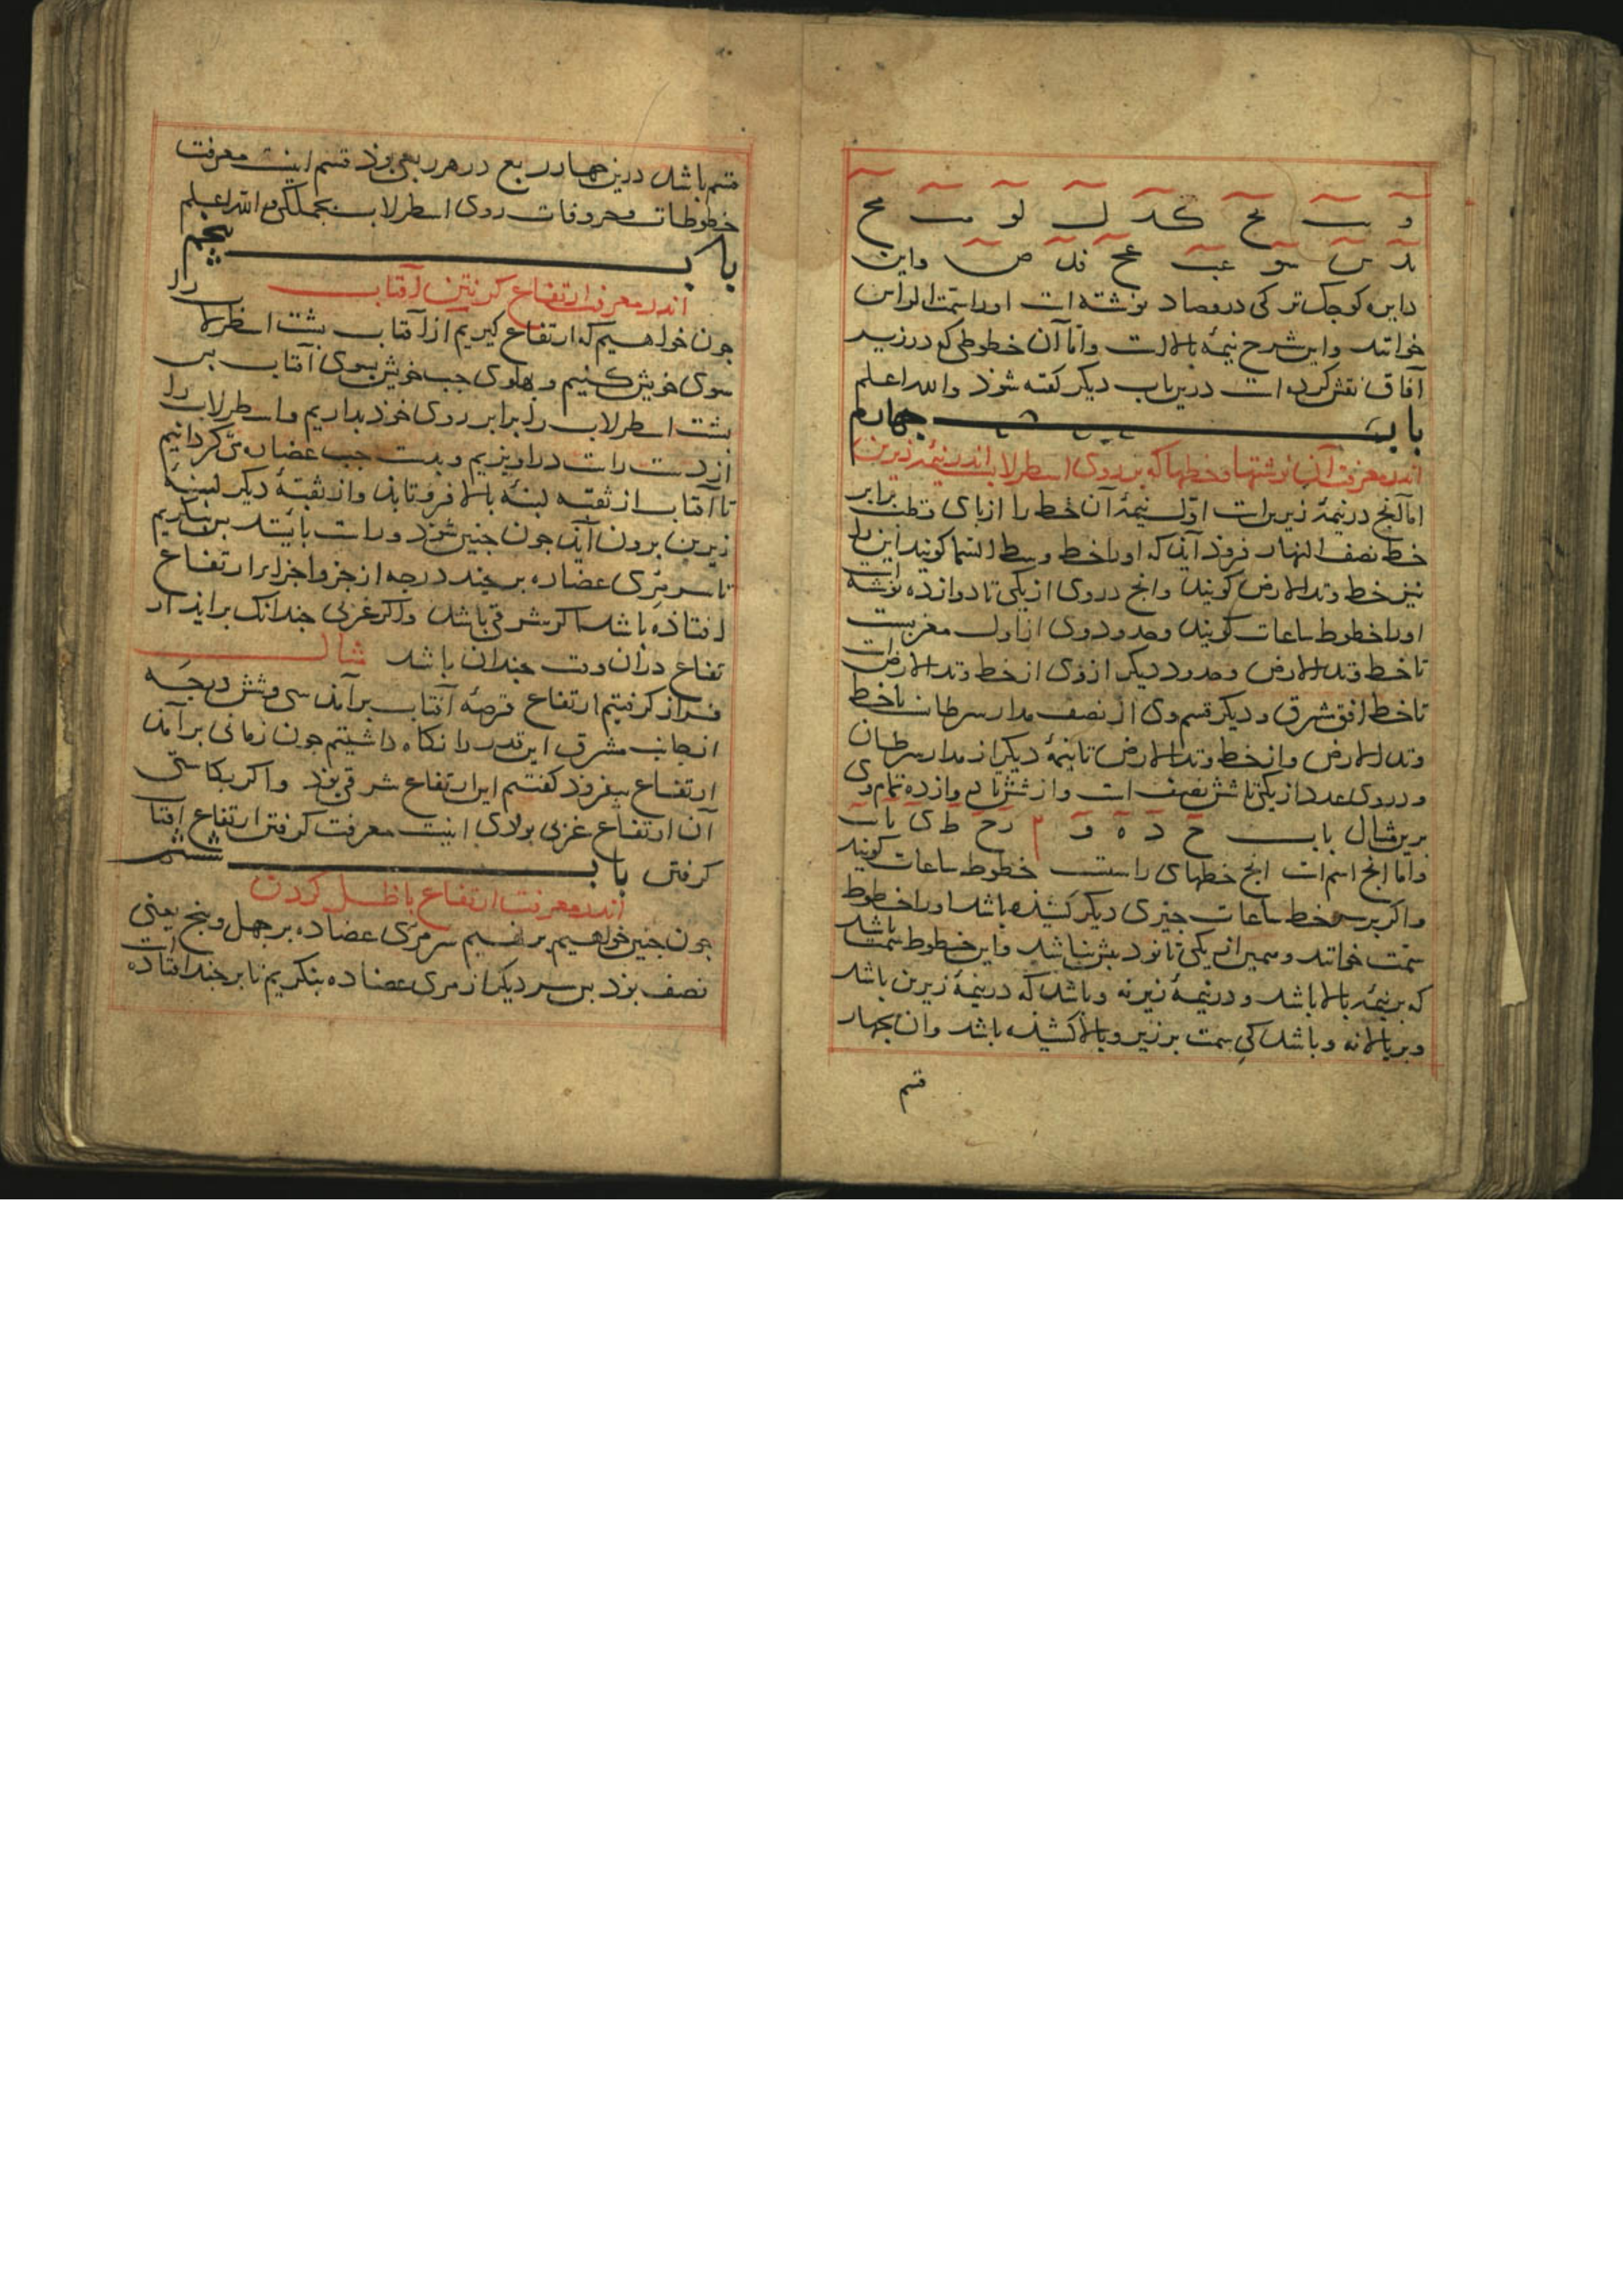 و یب یح کد ل لو مب مح
ند س سو عب عح فد ص واین
دایره کوجک تر کی دروصاد نوشته است اورا سمت الراس
خوانند واین شرح نیمهٔ بالاست واما آن خطوطی که در زیر
آفاق نقش کرده است درین باب دیکر کفته شوذ والله اعلم
باب جهارم
اندر معرفت آن نوشتها وخطها که بر روی اسطرلاب اندر نیمهٔ زیرین
اما آنج در نیمهٔ زیرین است اول نیمهٔ آن خط را از بای قطب برابر
خط نصف النهار فروذ آیذ که اورا خط وسط السما کویند این را
نیز خط وتد الارض کویند وانج در وی از یکی تا دوازده نوشته است
اورا خطوط ساعات کویند وحدود وی از اول مغربست
تا خط وتد الارض وحدود دیکر از وی از خط وتد الارض است
تا خط افق شرق ودیکر قسم وی از نصف مدار سرطان تا خط
وتد الارض واز خط وتد الارض تا نیمهٔ دیکر از مدار سرطان
ودر وی عدد از یکی تا شش نصف است واز شش تا دوازده تمام وی
برین مثال باب ج د ه و ز ح ط ی یا یب
واما انج اسم است انج خطهای راست خطوط ساعات کویند
واکر بر سر خط ساعات جیزی دیکر کشیذه باشد اورا خطوط
سمت خوانند وسمیر از یکی تا نود بیش نباشد واین خطوط سمت باشد
که بر نیمه بالا باشد ودر نیمهٔ زیر نه وباشد که در نیمهٔ زیرین باشد
وبر بالا نه وباشد کی سمت بر زیر وبالا کشیذه باشد وان بجهار
قسم
قسم باشد درین جهار ربع در هر ربعی نوذ قسم اینست معرفت
خطوطات وحروفات روی اسطرلاب بجملکی والله اعلم
باب بنجم
اندر معرفت ارتفاع کرفتن آفتاب
جون خواهیم که ارتفاع کیریم از آفتاب بشت اسطرلاب را
سوی خویش کنیم وبهلوی جب خویش بسوی آفتاب بس
بشت اسطرلاب را برابر روی خوذ بداریم واسطرلاب را
از دست راست دراویزیم وبدست جب عضاده می کردانیم
تا آفتاب از ثقبه لبنهٔ بالا فرو تابذ واز ثقبهٔ دیکر لبنهٔ
زیرین برون آیذ جون جنین شوذ وراست بایستد بس بنکریم
تا سر مری عضاده بر جند درجه از جزو اجزاء ارتفاع
افتاذه باشد اکر شرقی باشد واکر غربی جندانک برایذ ار
تفاع دران وقت جندان باشد مثال
فراز کرفتیم ارتفاع قرصهٔ آفتاب برآمذ سی وشش درجه
از جانب مشرق این قدر را نکاه داشتیم جون زمانی برآمذ
ارتفاع بیفزوذ کفتیم این ارتفاع شرقی بوذ واکر بکاستی
آن ارتفاع غربی بوذی اینست معرفت کرفتن ارتفاع آفتا
کرفتن باب ششم
اندر معرفت ارتفاع با ظل کردن
جون جنین خواهیم برنهیم سر مری عضاده بر جهل وبنج یعنی
نصف بوذ بس سر دیکر از مری عضاده بنکریم تا بر جند افتاده است